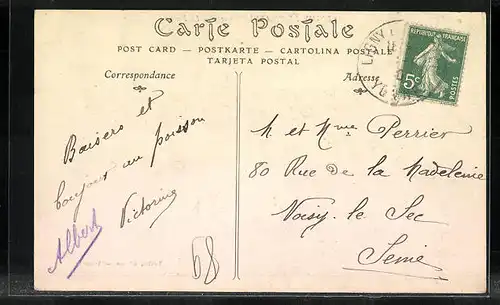 Carte Postale
POST CARD – POSTKARTE – CARTOLINA POSTALE
TARJETA POSTAL
Correspondance
Adresse
RÉPUBLIQUE FRANÇAISE
5c
POSTES
Baisers et
bonjour au poisson
Victorine
Albert
M. et Mme Perrier
80 Rue de la Madeleine
Noisy-le Sec
Seine
68